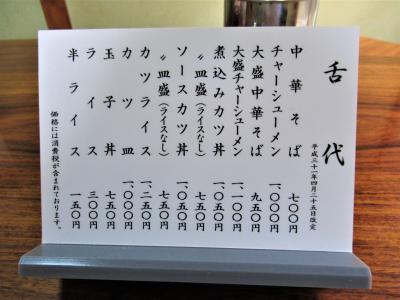 舌代
平成三十一年四月二十五日改定
中華そば 七〇〇円
チャーシューメン 一、〇〇〇円
大盛中華そば 九五〇円
大盛チャーシューメン 一、一〇〇円
煮込みカツ丼 一、〇五〇円
〃皿盛(ライスなし) 七五〇円
ソースカツ丼 一、〇五〇円
〃皿盛(ライスなし) 七五〇円
カツライス 一、二五〇円
カツ皿 一、〇〇〇円
玉子丼 七五〇円
ライス 三〇〇円
半ライス 一五〇円
価格には消費税が含まれております。